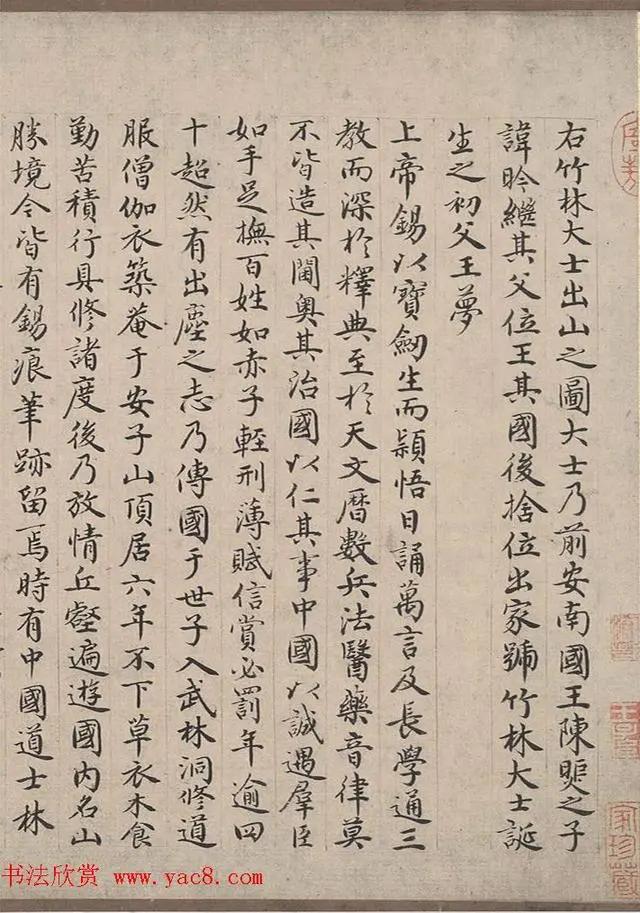 右竹林大士出山之圖大士乃前安南國王陳煚之子
諱昑繼其父位王其國後捨位出家號竹林大士誕
生之初父王夢
上帝錫以寶劔生而穎悟日誦萬言及長學通三
教而深於釋典至於天文曆數兵法醫藥音律莫
不皆造其閫奥其治國以仁其事中國以誠遇羣臣
如手足撫百姓如赤子輕刑薄賦信賞必罰年逾四
十超然有出塵之志乃傳國于世子入武林洞修道
服僧伽衣築菴于安子山頂居六年不下草衣木食
勤苦積行具修諸度後乃放情丘壑遍遊國内名山
勝境今皆有錫痕筆跡留焉時有中國道士林
家珍藏
书法欣赏 www.yac8.com